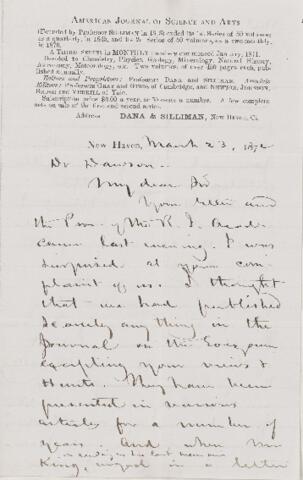 AMERICAN JOURNAL OF SCIENCE AND ARTS
Founded by Professor SILLIMAN in 18, ended its 1st Series of 50 volumes
as a quarterly, in 1845, and its 2d Series of 50 volumes, as a two-monthly,
in 1870.
A THIRD SERIES in MONTHLY numbers commenced January, 1871.
Devoted to Chemistry, Physics, Geology, Mineralogy, Natural History,
Astronomy, Meteorology, etc. Two volumes, of over 450 pages each, published annually.
Editors and Proprietors: Professors DANA and SILLIMAN. Associate
Editors: Professors GRAY and GIBBS of Cambridge, and NEWTON, JOHNSON,
BRUSH and VERRILL of Yale.
Subscription price $6.00 a year, or 50 cents a number. A few complete
sets on sale of the first and second series.
Address DANA & SILLIMAN, New Haven, Ct.
New Haven, March 23, 1872
Dr Dawson—
My dear Sir
Your letter and
the Proc. of the R. I. Acad.
came last evening. I was
surprised at your com
plaint of us. I thought
that we had published
scarcely anything in the
Journal on the Eozoon
excepting your views &
Hunt's. They have been
presented in various
articles for a number of
years. And when Mr
King, urged in a letter